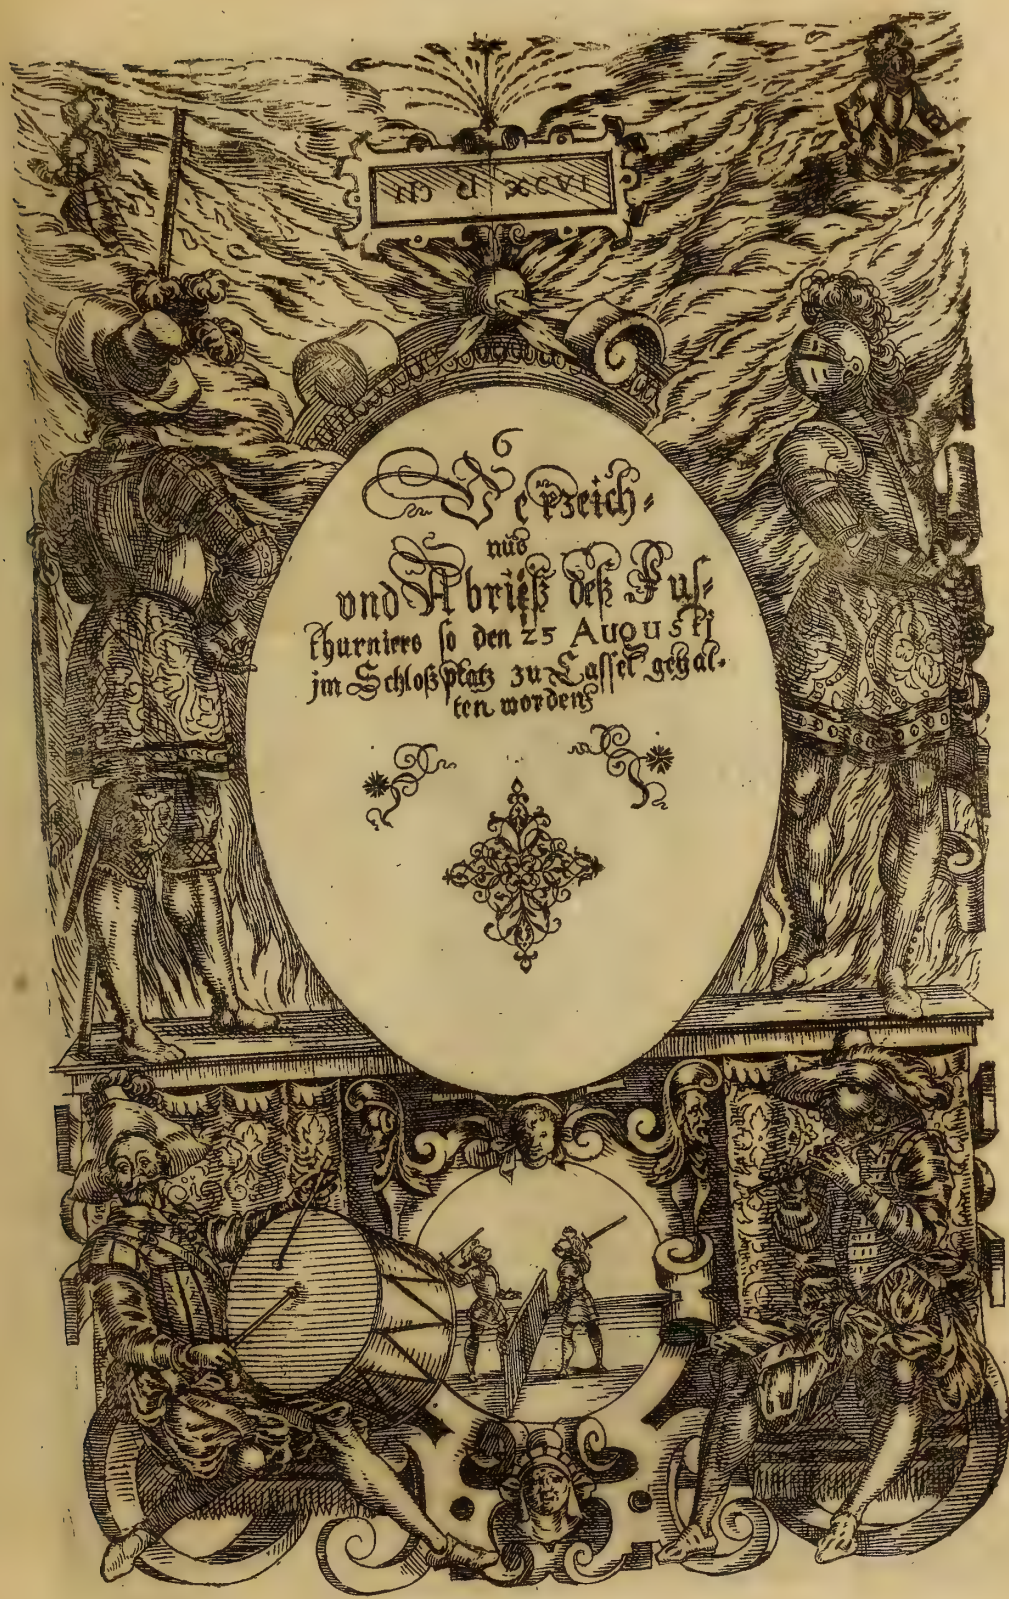 CIↃ IↃ XCVI
6
Verzeich⸗
nüs
vnd Abrieß deß Fus⸗
thurniers so den 25 Augusti
jm Schloßplatz zu Cassel gehal⸗
ten worden